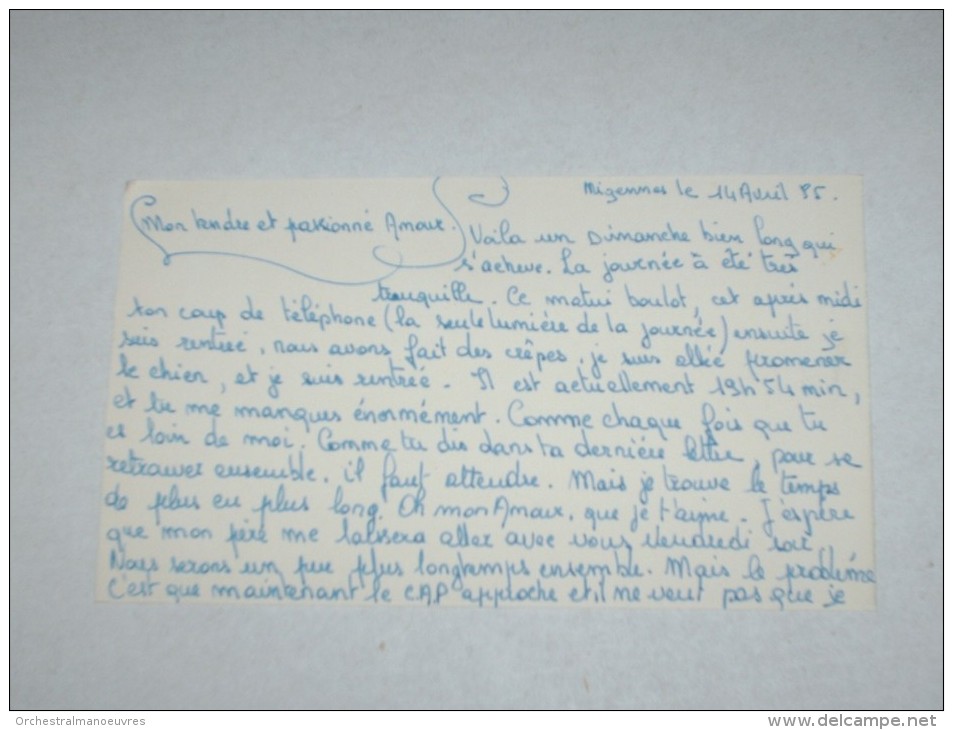 Migennes le 14 Avril 85.
Mon tendre et passionné Amour.
Voila un Dimanche bien long qui
s'acheve. La journée à été très
tranquille. Ce matin boulot, cet après midi
ton coup de téléphone (la seule lumière de la journée) ensuite je
suis rentrée, nous avons fait des crêpes, je suis allée promener
le chien, et je suis rentrée. Il est actuellement 19h 54 min,
et tu me manques énormément. Comme chaque fois que tu
es loin de moi. Comme tu dis dans ta dernière lettre, pour se
retrouver ensemble, il faut attendre. Mais je trouve le temps
de plus en plus long. Oh mon Amour, que je t'aime. J'espère
que mon père me laissera aller avec vous Vendredi soir.
Nous serons un peu plus longtemps ensemble. Mais le problème
c'est que maintenant le CAP approche et il ne veut pas que je
Orchestralmanoeuvres
www.delcampe.net